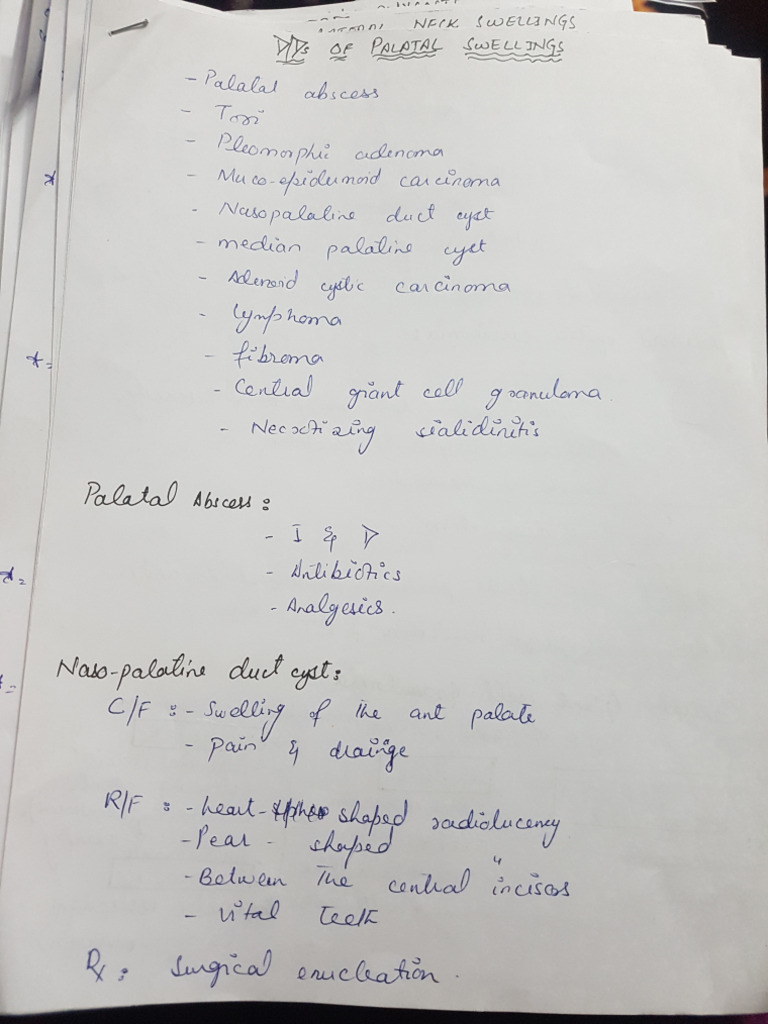 NECK SWELLINGS
D/Ds OF PALATAL SWELLINGS
- Palatal abscess
- Tori
- Pleomorphic adenoma
- Muco-epidumoid carcinoma
- Nasopalatine duct cyst
- median palatine cyst
- Adenoid cystic carcinoma
- Lymphoma
- fibroma
- Central giant cell granuloma
- Necrotizing sialidinitis
Palatal Abscess:
- I & D
- Antibiotics
- Analgesics.
Naso-palatine duct cyst:
C/F : - Swelling of the ant palate
- Pain & drainge
R/F : - heart- shaped radiolucency
- Pear - shaped "
- Between the central incisors
- vital teeth
Rx : Surgical enucleation.